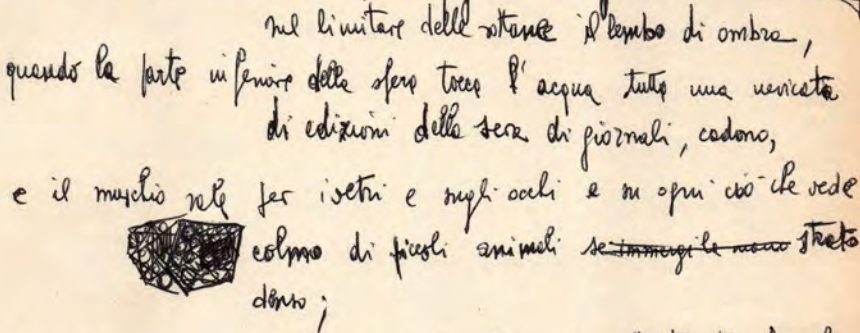 sul limitare delle sottane il lembo di ombra,
quando la parte inferiore della sfera tocca l'acqua tutta una nevicata
di edizioni della sera di giornali, cadono,
e il muschio sale per i vetri e sugli occhi e su ogni ciò che vede
colmo di piccoli animali se immergi la mano strato
denso;